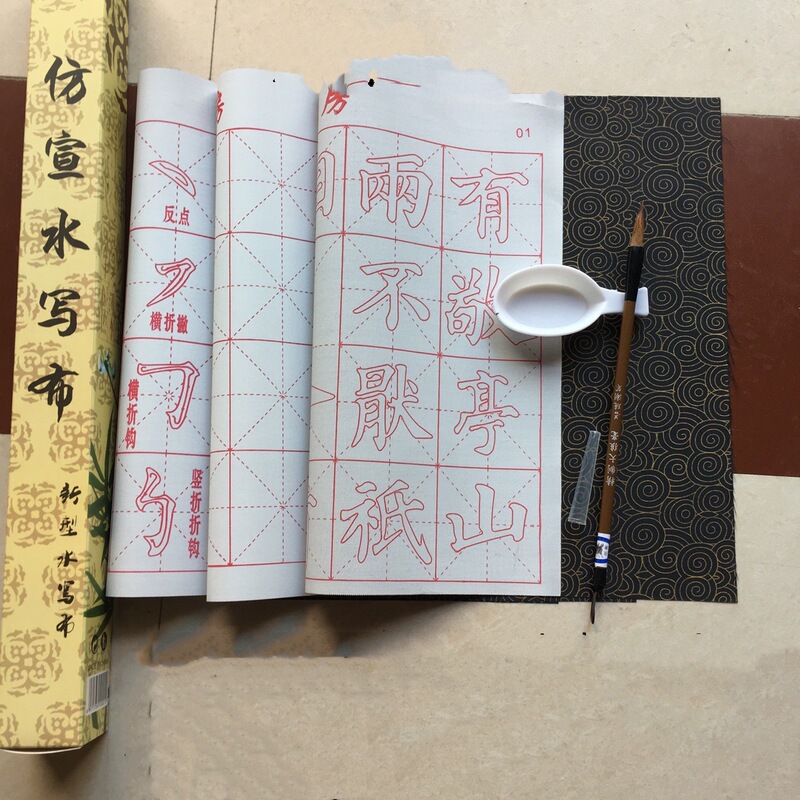 仿宣水写布
新型水写布
反点
横折撇
横折钩
竖折折钩
房
房
01
有敬亭山
兩不厭祇